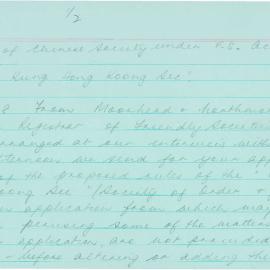 1/2
of Chinese Society under F.S. Ac
Sung Hong Koong See".
8 From Moorhead &
Registrar of Friendly Societies
arranged at our interview with
afternoon we send for your app
of the proposed rules of the "
oong See" (Society of Order &
an application from which may
perusing some of the matters
application, are not provided
- before altering or adding the